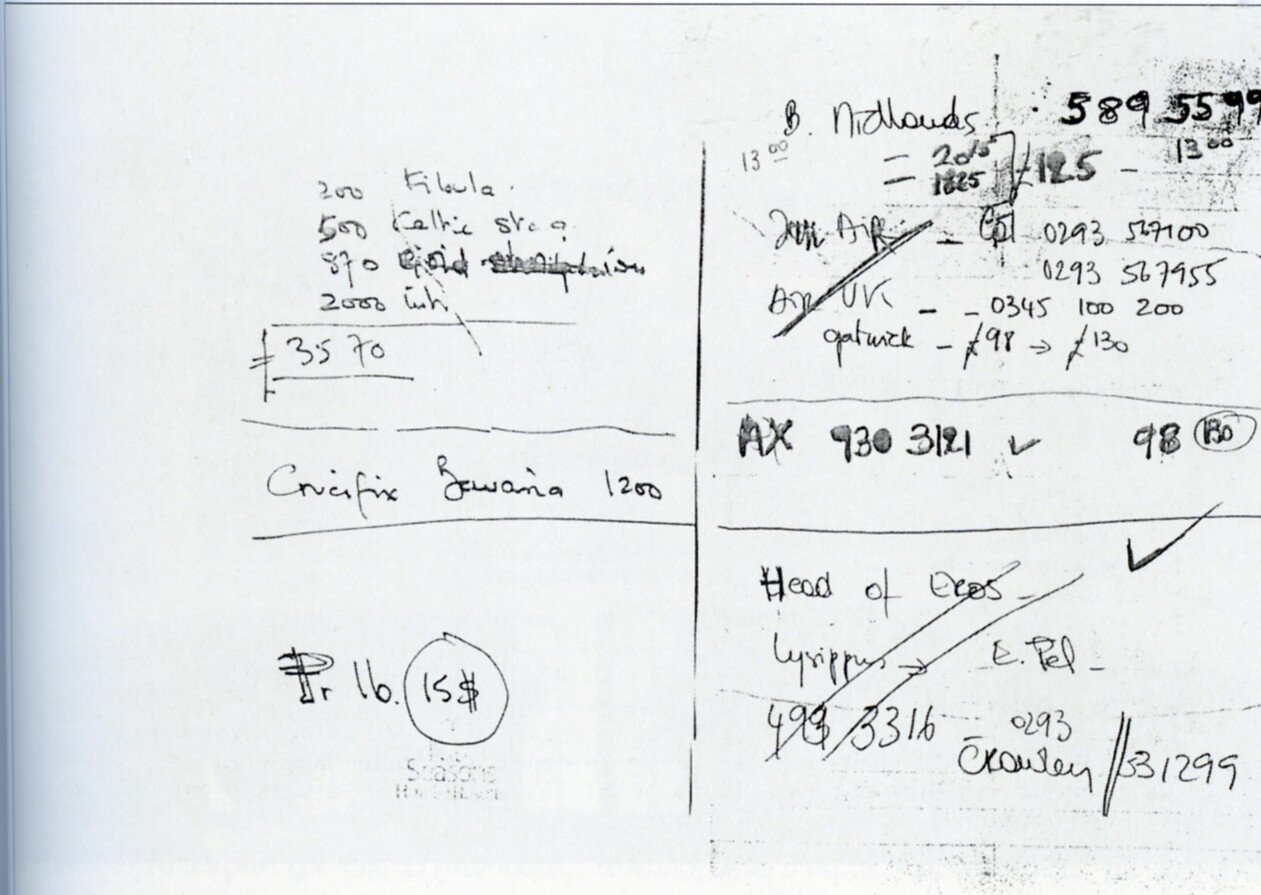 200 Fibula.
500 Celtic stag
870 Gold
2000
= 3570
Crucifix Bavaria 1200
Pr lb. 15$
Seasons
B. Midlands . 589 5599
13 00 = 2015 £125 - 13 00
= 1825
Air - 0293 567100
0293 567955
Air UK - - 0345 100 200
gatwick - £98 → £130
AX 930 3121 ✓ 98 130
✓
Head of Eros -
Lysippus → E. Pel -
499 3316 - 0293
Crawley // 331299